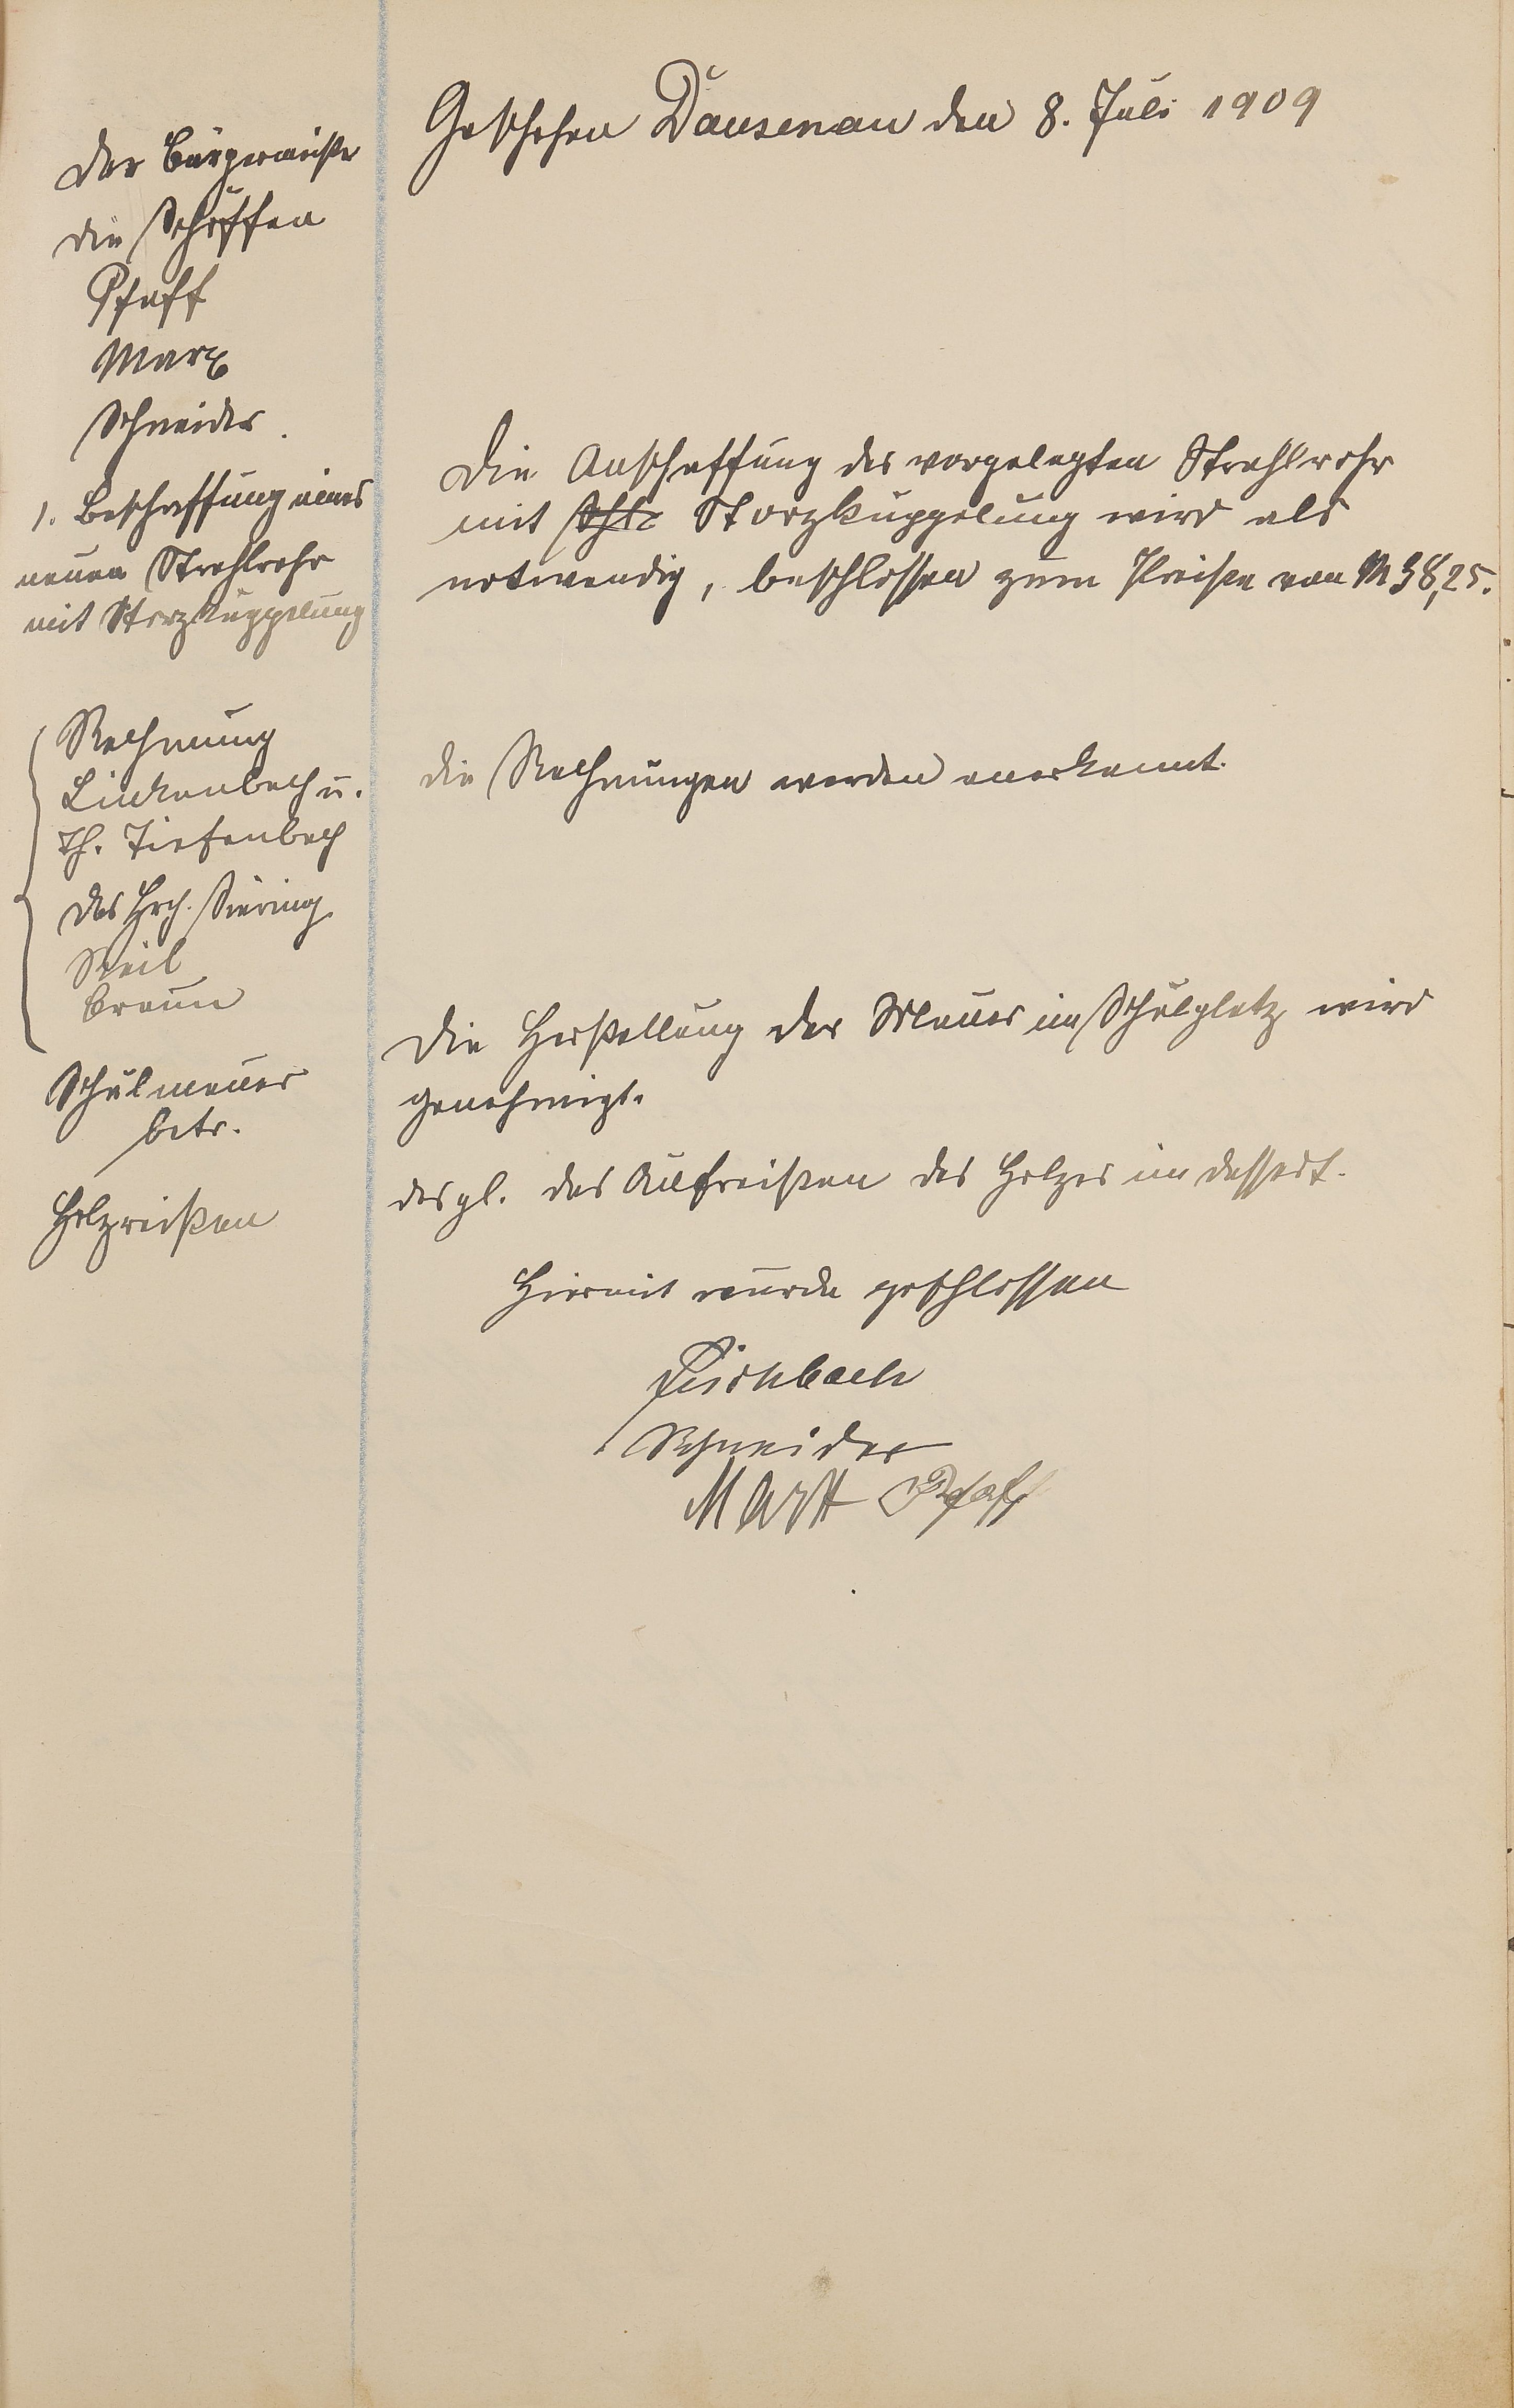 Geschehen Dausenau den 8. Juli 1909
Der Bürgermeister
die Schöffen
Pfaff
Marx
Schneider.
1. Beschaffung eines
neuen Strahlrohr
mit Storzkuppelung
Die Anschaffung des vorgelegten Strahlrohr
mit Storzkuppelung wird als
notwendig, beschlossen zum Preise von M 38,25.
Rechnung
Linkenbach u.
Th. Tiefenbach
des Hrch.
Keil
Braun
die Rechnungen werden anerkannt.
Schulmauer
betr.
Die Herstellung der Mauer im Schulplatz wird
genehmigt.
Holzreißen
desgl. das Aufreißen des Holzes im
Hiermit wurde geschlossen
Fischbach
Schneider
Marx Pfaff